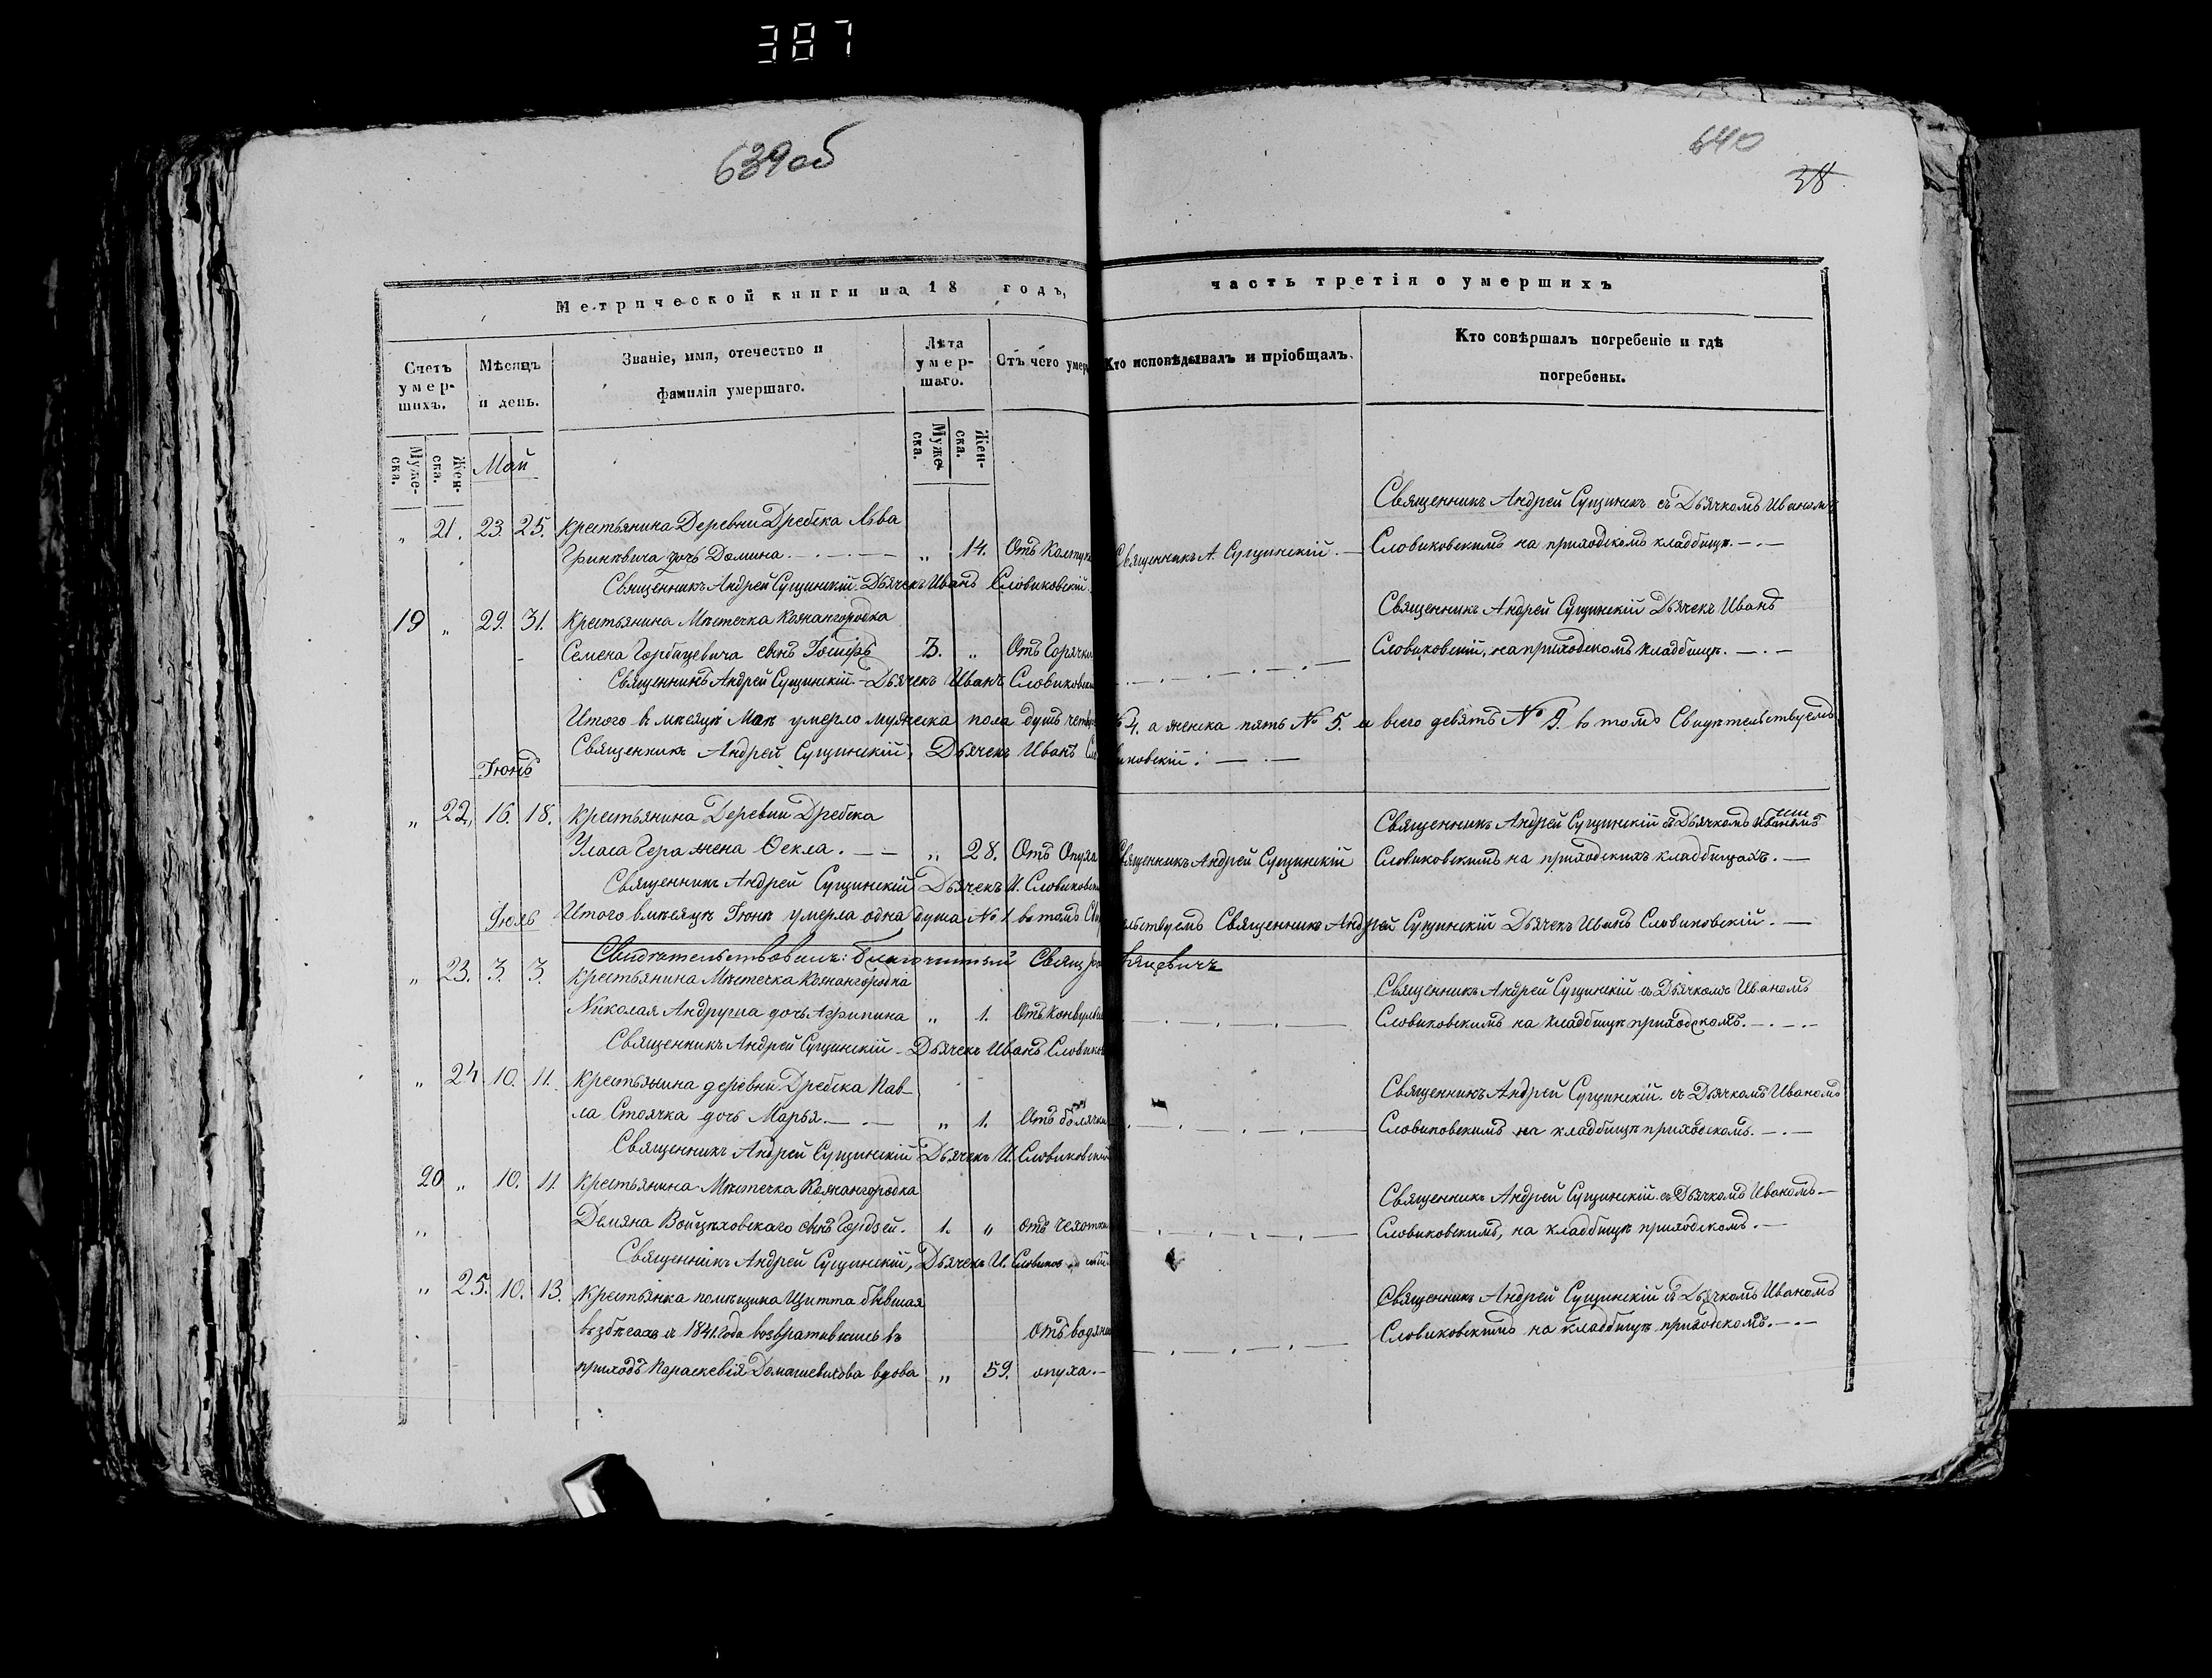 387
639об
640
38
Метрической книги на 18 годъ, часть третія о умершихъ
Счетъ умершихъ.
Мѣсяцъ и день.
Званіе, имя, отечество и фамилія умершаго.
Лѣта умершаго.
Отъ чего умер
Кто исповѣдывалъ и пріобщалъ.
Кто совѣршалъ погребеніе и гдѣ погребены.
Мужеска. Женска.
Мужеска. Женска.
Май
Священникъ Андрей Сущинск съ Дьячкомъ Иваномъ
" 21. 23. 25. Крестьянина Деревни Дребска Льва
Гриневича дочь Домина. " 14. Отъ Священникъ А. Сущинскій. Словиковскимъ на приходскомъ кладбищѣ.
Священникъ Андрей Сущинскій. Дьячекъ Иванъ Словиковскій.
19 " 29. 31. Крестьянина Мѣстечка Кожангородка Священникъ Андрей Сущинскій Дьячекъ Иванъ
Семена Горбацевича сынъ Іосифъ 3. " Отъ Горячки Словиковскій, на приходскомъ кладбищѣ.
Священникъ Андрей Сущинскій Дьячекъ Иванъ Словиковскій
Итого въ мѣсяцѣ Маѣ умерло мужеска пола душъ четыре № 4. а женска пять № 5. и всего девять № 9. въ томъ Свидѣтельствуемъ
Священникъ Андрей Сущинскій, Дьячекъ Иванъ Словиковскій.
Іюнь
" 22. 16. 18. Крестьянина Деревни Дребска Священникъ Андрей Сущинскій съ Дьячкомъ Иваномъ
Уласа Гера жена Ѳекла. " 28. Отъ Опуха Священникъ Андрей Сущинскій Словиковскимъ на приходскихъ кладбищахъ.
Священникъ Андрей Сущинскій Дьячекъ И. Словиковскій
Итого въ мѣсяцѣ Іюнѣ умерла одна душа № 1. въ томъ Свидѣтельствуемъ Священникъ Андрей Сущинскій Дьячекъ Иванъ Словиковскій.
Іюль
Свидѣтельствовалъ: благочинный Свящ
" 23. 3. 3. Крестьянина Мѣстечка Кожангородка Священникъ Андрей Сущинскій съ Дьячкомъ Иваномъ
Николая Андруша дочь Агрипина " 1. Отъ Конвульсіи Словиковскимъ на кладбищѣ приходскомъ.
Священникъ Андрей Сущинскій Дьячекъ Иванъ Словиков
" 24 10. 11. Крестьянина деревни Дребска Пав- Священникъ Андрей Сущинскій. съ Дьячкомъ Иваномъ
ла Стоячка дочь Марья. " 1. Отъ болячки Словиковскимъ на кладбищѣ приходскомъ.
Священникъ Андрей Сущинскій Дьячекъ И. Словиковскій
20 " 10. 11. Крестьянина Мѣстечка Кожангородка Священникъ Андрей Сущинскій съ Дьячкомъ Иваномъ
Демяна Войцѣховскаго сынъ Гордѣй. 1. " отъ чехотки Словиковскимъ, на кладбищѣ приходскомъ.
Священникъ Андрей Сущинскій, Дьячекъ И. Словиковскій
" 25. 10. 13. Крестьянка помѣщика Щитта бывшая Священникъ Андрей Сущинскій съ Дьячкомъ Иваномъ
въ збѣгахъ и 1841. Года возвратившись въ Отъ водяни Словиковскимъ на кладбищѣ приходскомъ.
приходъ Параскевія вдова " 59. опуха.